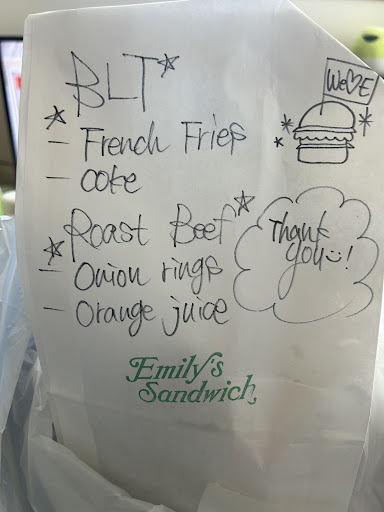 BLT
- French Fries
- coke
Roast Beef
- Onion rings
- Orange juice
We♡E
Thank
you!
Emily's
Sandwich